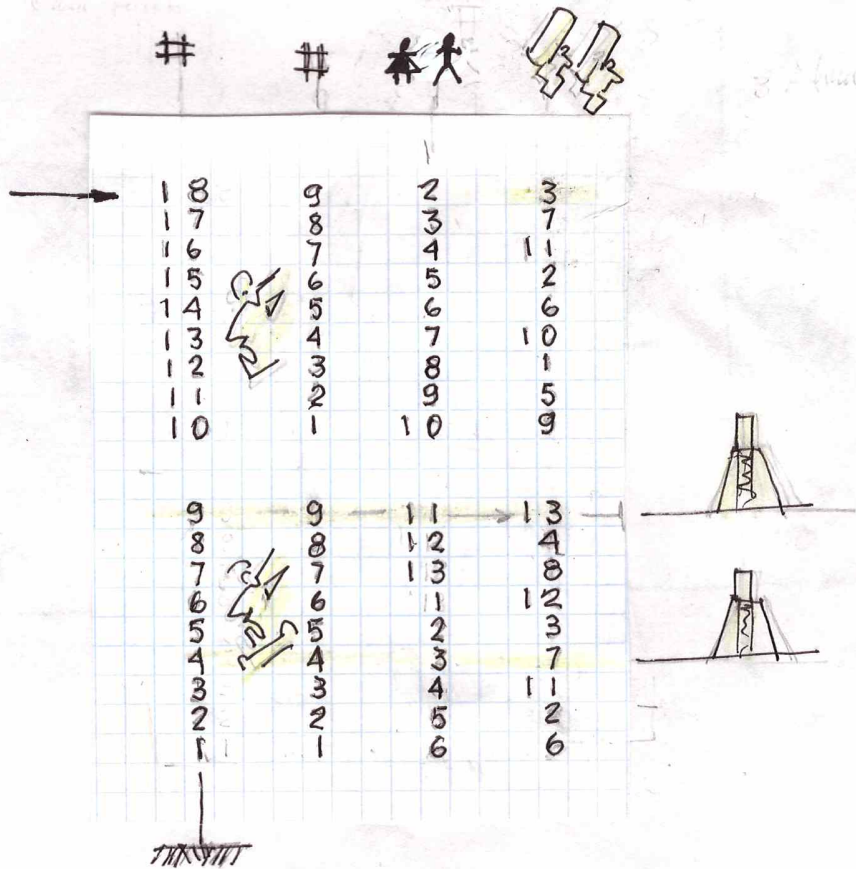 # #
18 9 2 3
17 8 3 7
16 7 4 11
15 6 5 2
14 5 6 6
13 4 7 10
12 3 8 1
11 2 9 5
10 1 10 9
9 9 11 13
8 8 12 4
7 7 13 8
6 6 1 12
5 5 2 3
4 4 3 7
3 3 4 11
2 2 5 2
1 1 6 6